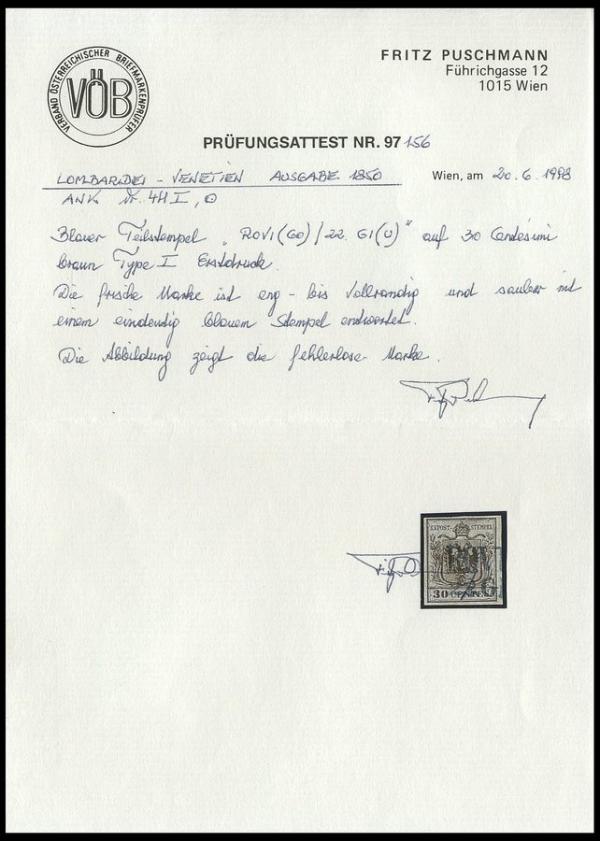 VERBAND ÖSTERREICHISCHER BRIEFMARKENPRÜFER
VÖB
FRITZ PUSCHMANN
Führichgasse 12
1015 Wien
PRÜFUNGSATTEST NR. 97156
LOMBARDEI - VENETIEN AUSGABE 1850
Wien, am 20. 6. 1998
ANK Nr. 4H I, O
Blauer Teilstempel "ROVI(GO)/22. GI(U)" auf 30 Centesimi
braun Type I Erstdruck.
Die frische Marke ist eng- bis vollrandig und sauber mit
einem eindeutig blauem Stempel entwertet.
Die Abbildung zeigt die fehlerlose Marke.
KKPOST-STEMPEL
30 CENTES